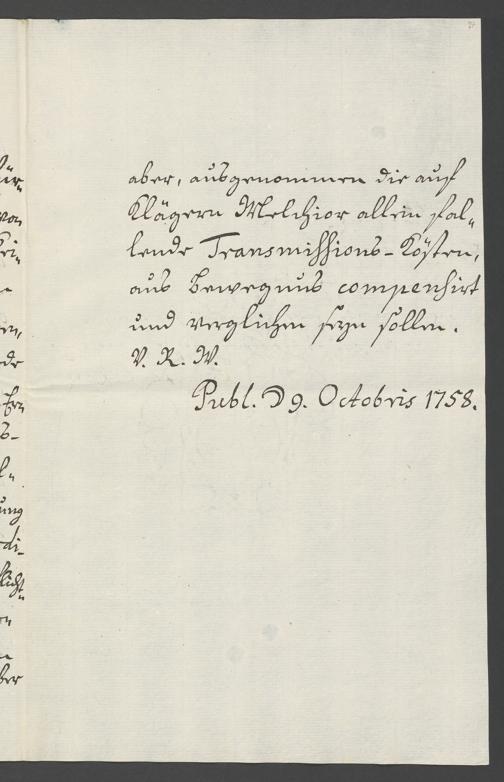 aber, ausgenommen die auf
Klägern Melchior allein fal„
lende Transmissions-Kösten,
aus bewegnus compensirt
und verglichen seyn sollen.
V. R. W.
Publ. D 9. Octobris 1758.